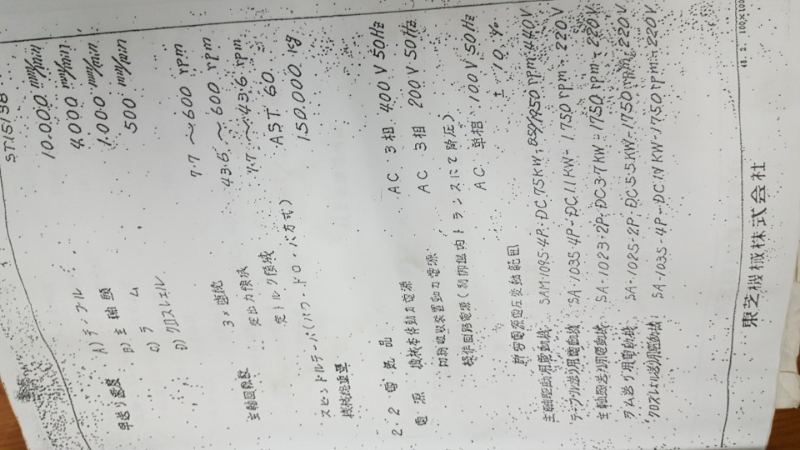 ST15138
早送り速度 A) テーブル 10.000 mm/min
B) 主軸頭 4.000 mm/min
C) ラム 1.000 mm/min
D) クロスレール 500 mm/min
主軸回転数 7.7 〜 600 rpm
定出力領域 43.6 〜 600 rpm
定トルク領域 7.7 〜 43.6 rpm
AST 60
機械総重量 150.000 kg
2.2 電気品
電源 機械本体動力電源 AC 3相 400V 50Hz
切粉 装置動力電源 AC 3相 200V 50Hz
操作回路電源(制御盤内トランスにて降圧) AC 単相 100V 50Hz
許容電源電圧変動範囲 ± 10 %
主軸駆動用電動機 DC75KW 440V
テーブル送り用電動機 SA-1035-4P-DC11KW-1750rpm-220V
主軸頭送り用電動機 SA-1023-2P-DC3.7KW-1750rpm-220V
ラム送り用電動機 SA-1025-2P-DC5.5KW-1750rpm-220V
クロスレール送り用電動機 SA-1035-4P-DC11KW-1750rpm-220V
東芝機械株式会社